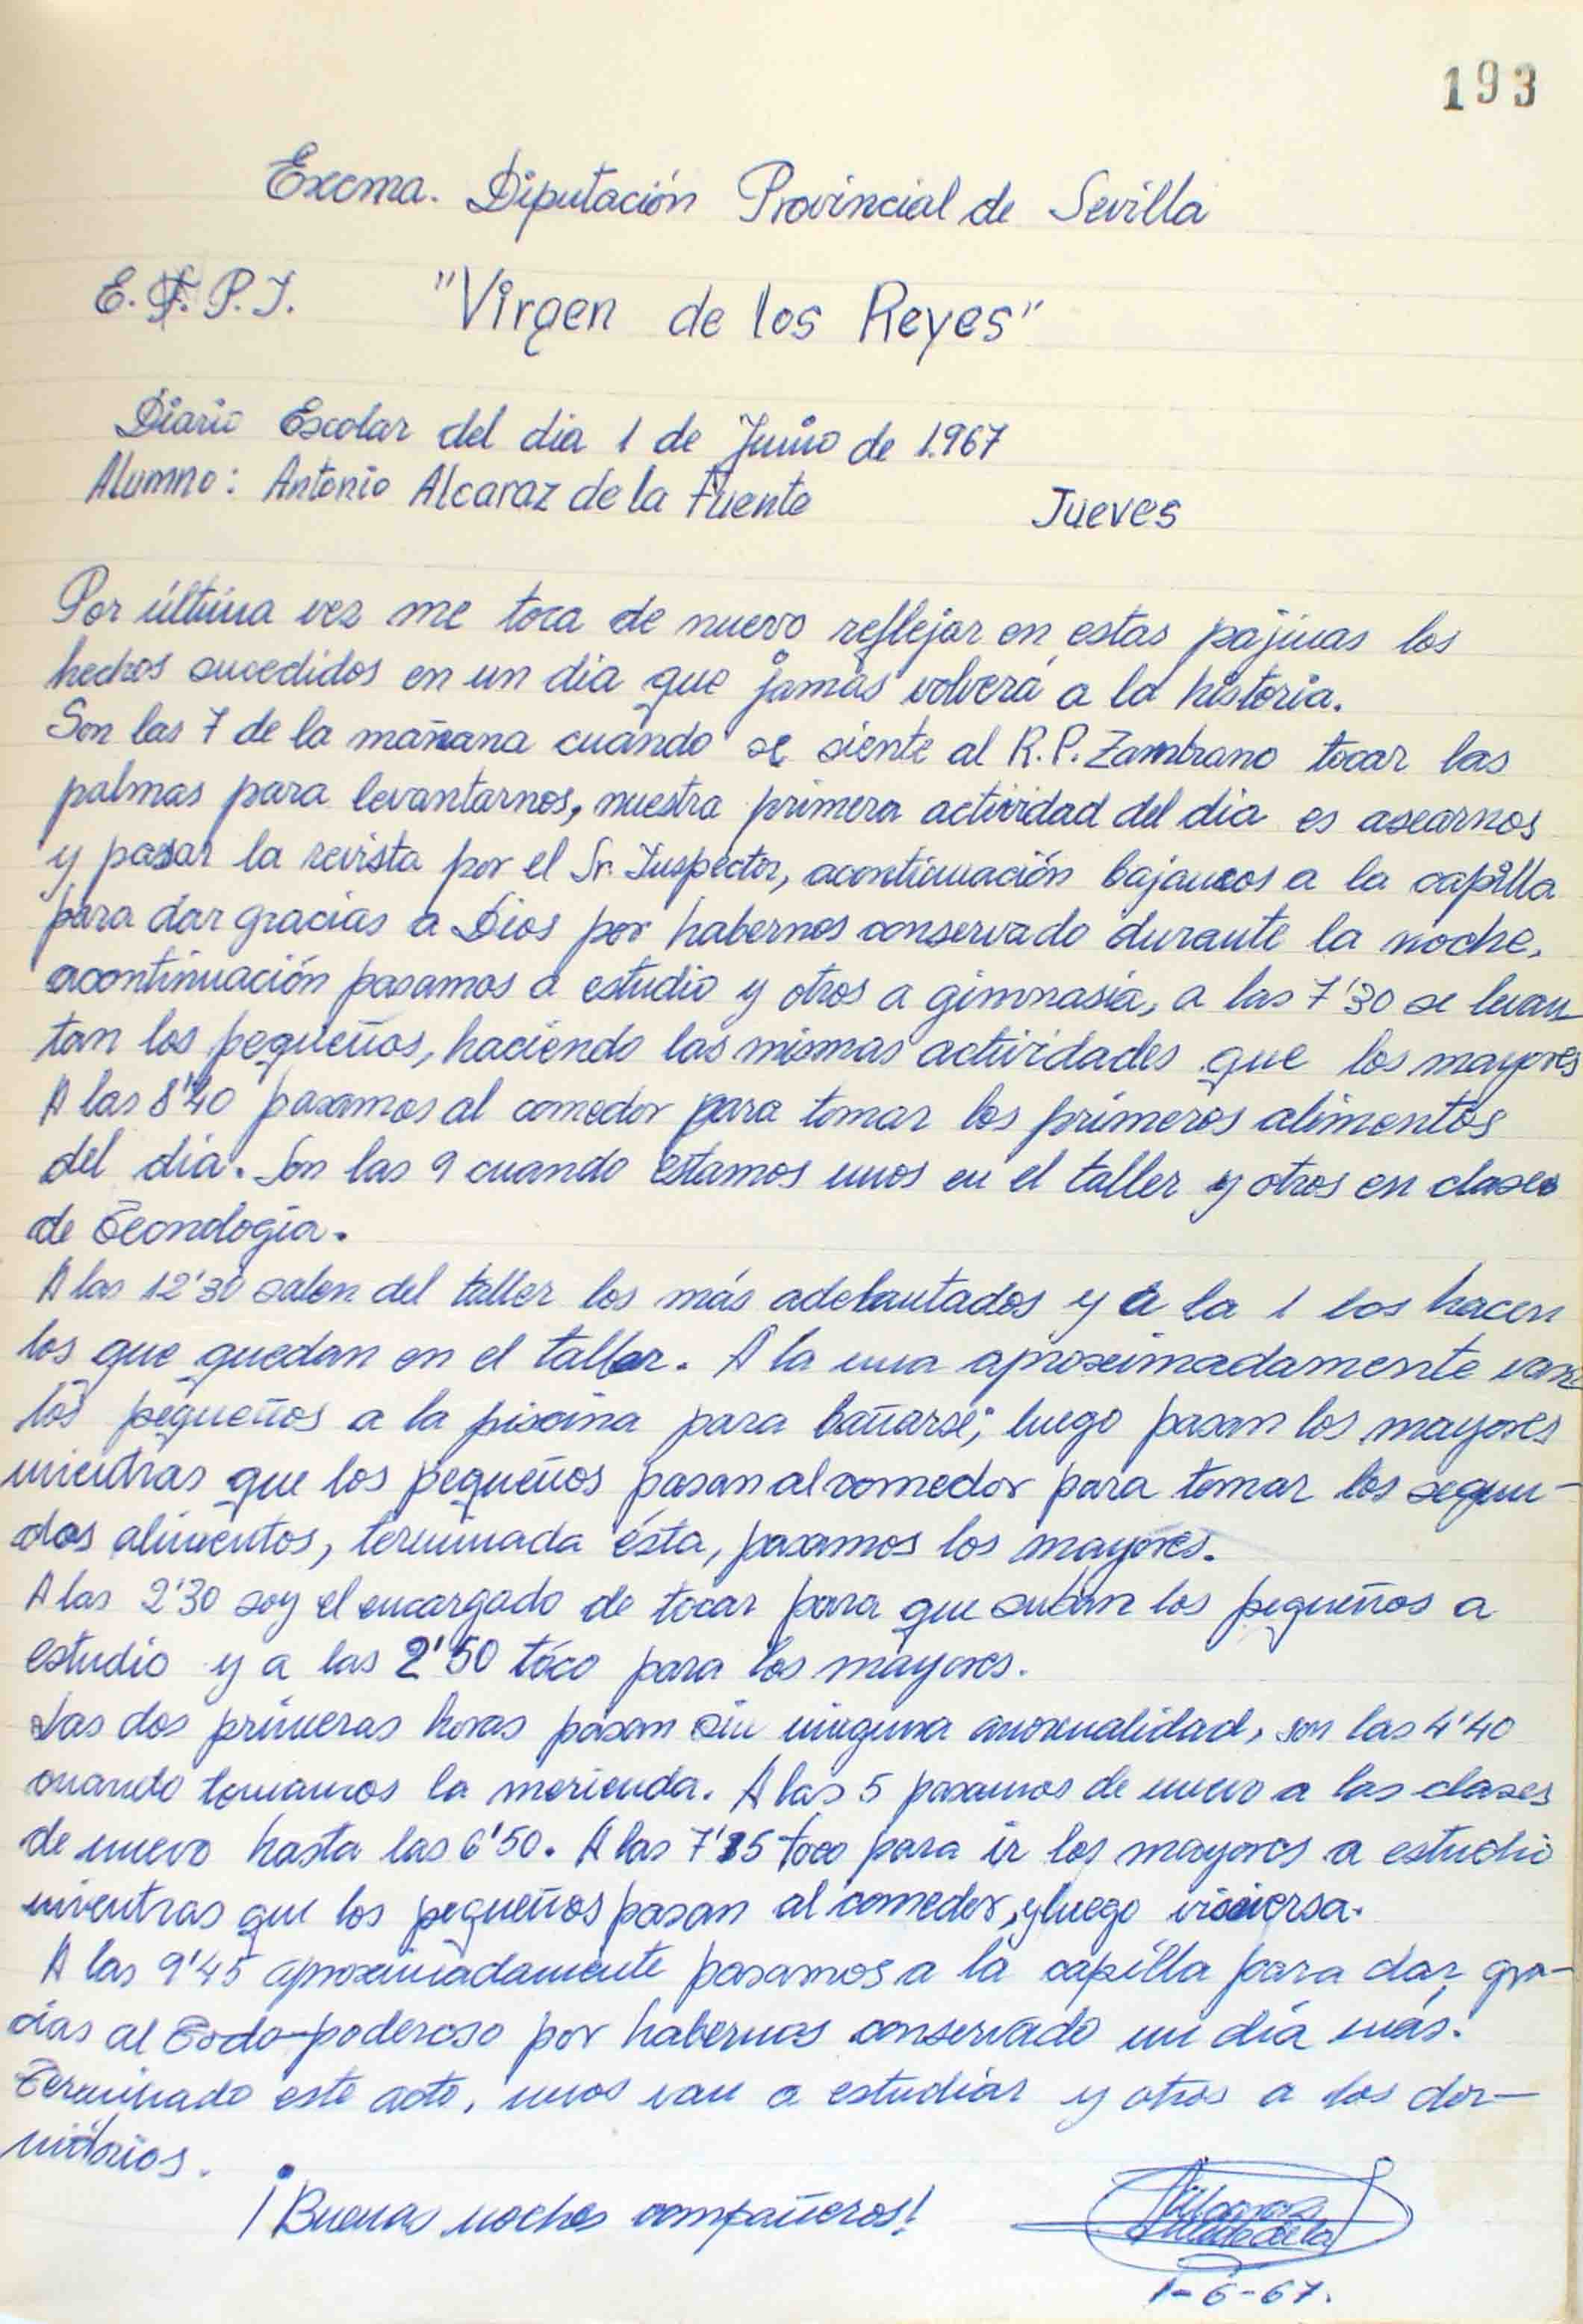 193
Excma. Diputación Provincial de Sevilla
E. F. P. I. "Virgen de los Reyes"
Diario Escolar del dia 1 de Junio de 1.967
Alumno: Antonio Alcaraz de la Fuente Jueves
Por última vez me toca de nuevo reflejar en estas pájinas los
hechos sucedidos en un dia que jamás volverá a la historia.
Son las 7 de la mañana cuando se siente al R.P. Zambrano tocar las
palmas para levantarnos, nuestra primera actividad del dia es asearnos
y pasar la revista por el Sr. Inspector, acontinuación bajamos a la capilla
para dar gracias a Dios por habernos conservado durante la noche.
acontinuación pasamos a estudio y otros a gimnasia, a las 7'30 se levan
tan los pequeños, haciendo las mismas actividades que los mayores
A las 8'40 pasamos al comedor para tomar los primeros alimentos
del día. Son las 9 cuando estamos unos en el taller y otros en clases
de Tecnología.
A las 12'30 salen del taller los más adelantados y a la 1 los hacen
los que quedan en el taller. A la una aproximadamente van
los pequeños a la piscina para bañarse; luego pasan los mayores
mientras que los pequeños pasan al comedor para tomar los segun-
dos alimentos, terminada ésta, pasamos los mayores.
A las 2'30 soy el encargado de tocar para que suban los pequeños a
estudio y a las 2'50 tóco para los mayores.
Las dos primeras horas pasan sin ninguna anormalidad, son las 4'40
cuando tomamos la merienda. A las 5 pasamos de nuevo a las clases
de nuevo hasta las 6'50. A las 7'35 toco para ir los mayores a estudio
mientras que los pequeños pasan al comedor, y luego viciversa.
A las 9'45 aproximadamente pasamos a la capilla para dar gra-
cias al Todo-poderoso por habernos conservado un día más.
Terminado este acto, unos van a estudiar y otros a los dor-
mitorios.
¡Buenas noches compañeros!
1-6-67.